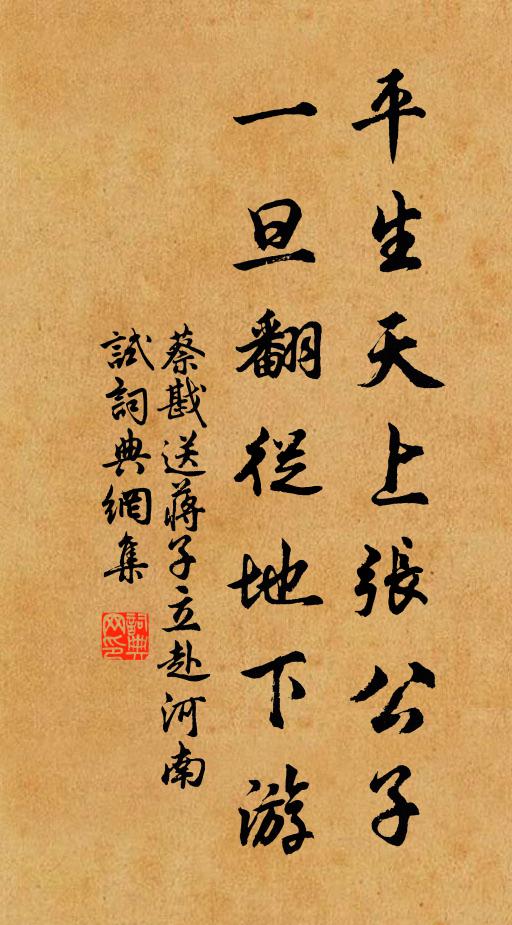 平生天上張公子
一旦翻從地下游
蔡戡送蔣子立赴河南
試詞典網集
詞典
网印